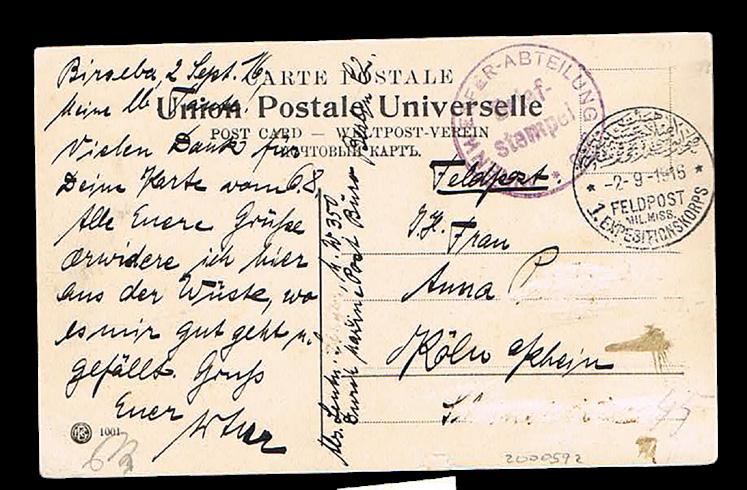 CARTE POSTALE
Union Postale Universelle
POST CARD — WELTPOST-VEREIN
ПОЧТОВЫЙ КАРТЪ.
Birseba, 2 Sept. 16
Meine lb. Tante.
Vielen Dank für
Deine Karte vom 6.8.
Alle Euere Grüße
erwidere ich hier
aus der Wüste, wo
es mir gut geht u.
gefällt. Gruss
Euer
1001
Durch Marine Post Büro Berlin
Brief-
stempel
-2-9-1916
FELDPOST
MIL. MISS.
1. EXPEDITIONSKORPS
Feldpost.
Frau
Anna P
Köln a/Rhein
2000592